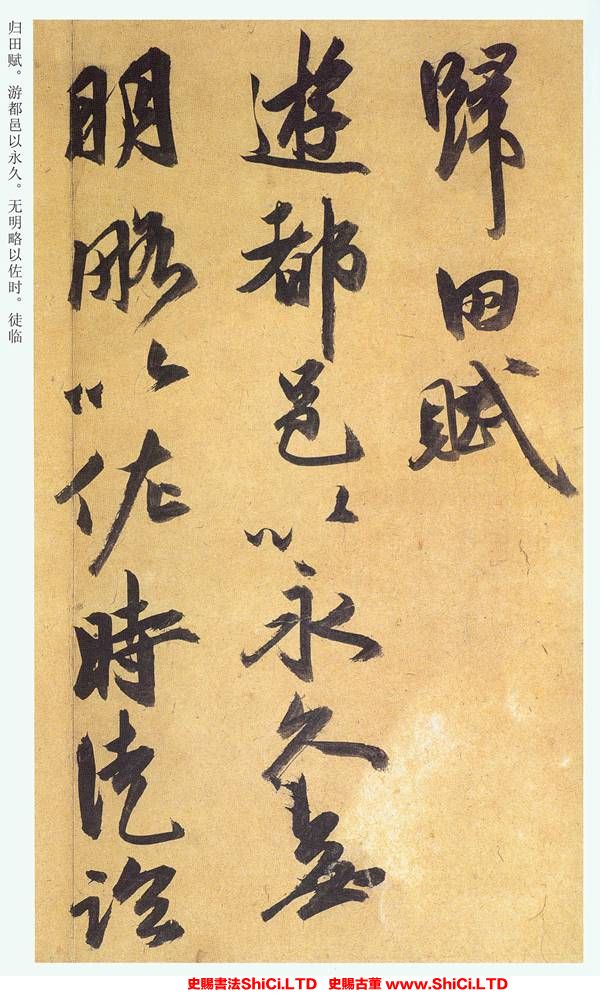 歸田賦
遊都邑以永久無
明略以佐時徒臨
归田赋。游都邑以永久。无明略以佐时。徒临
史賜書法ShiCi.LTD 史賜古董 www.ShiCi.LTD